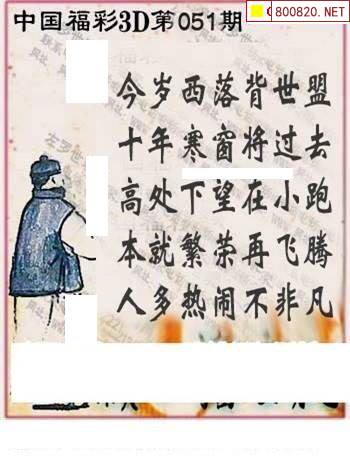 800820.NET
中国福彩3D第051期
今岁西落背世盟
十年寒窗将过去
高处下望在小跑
本就繁荣再飞腾
人多热闹不非凡